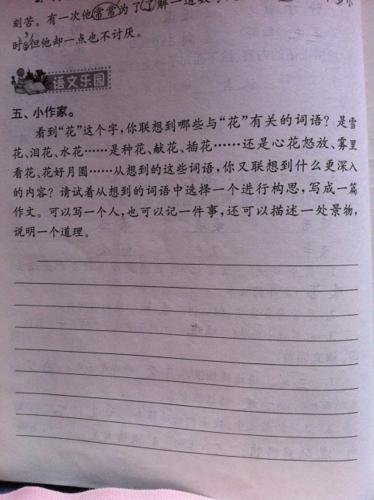 刻苦。有一次他常常为了了解一道数
时，但他却一点也不讨厌。
语文乐园
五、小作家。
看到“花”这个字，你联想到哪些与“花”有关的词语？是雪
花、泪花、水花……是种花、献花、插花……还是心花怒放、雾里
看花、花好月圆……从想到的这些词语，你又联想到什么更深入
的内容？请试着从想到的词语中选择一个进行构思，写成一篇
作文。可以写一个人，也可以记一件事，还可以描述一处景物，
说明一个道理。